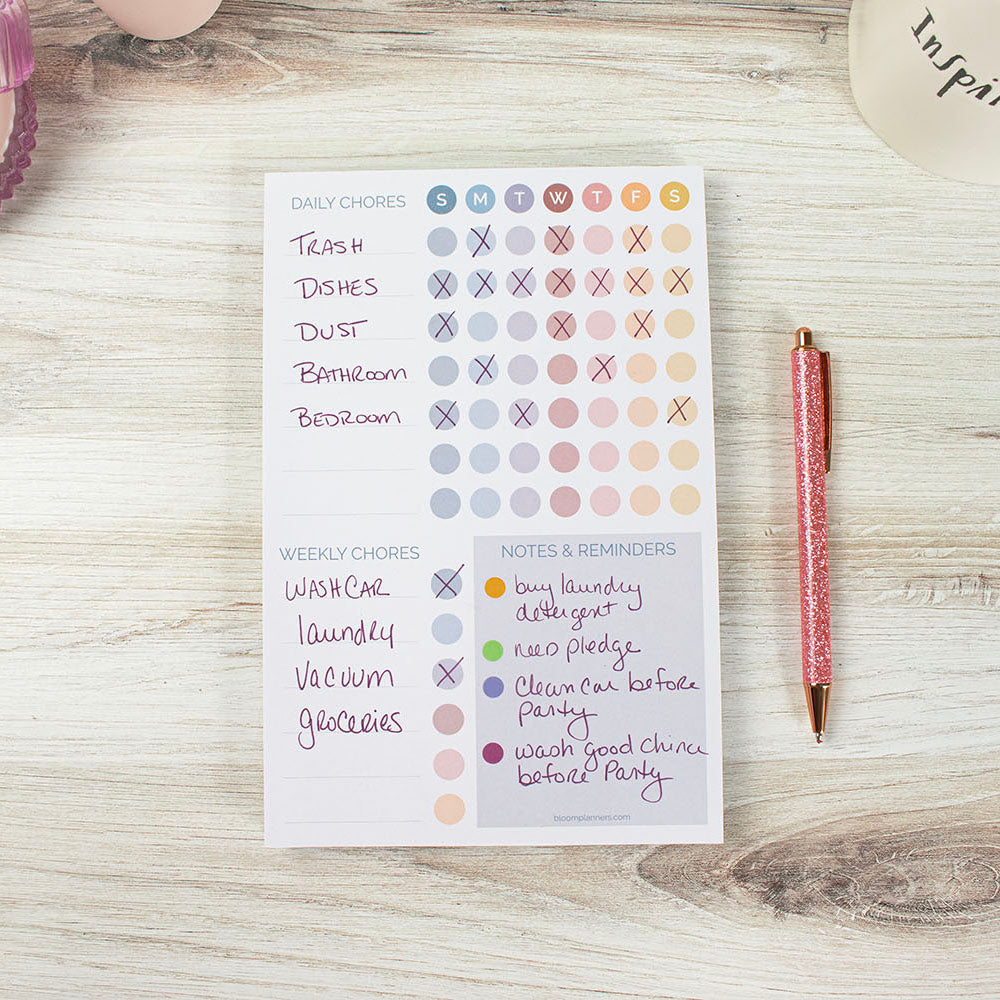 Inspir
DAILY CHORES S M T W T F S
TRASH X X X
DISHES X X X X X X X
DUST X X X
BATHROOM X X
BEDROOM X X X
WEEKLY CHORES
WASH CAR X
laundry
VACUUM X
groceries
NOTES & REMINDERS
buy laundry
detergent
need pledge
Clean car before
Party
wash good China
before Party
bloomplanners.com